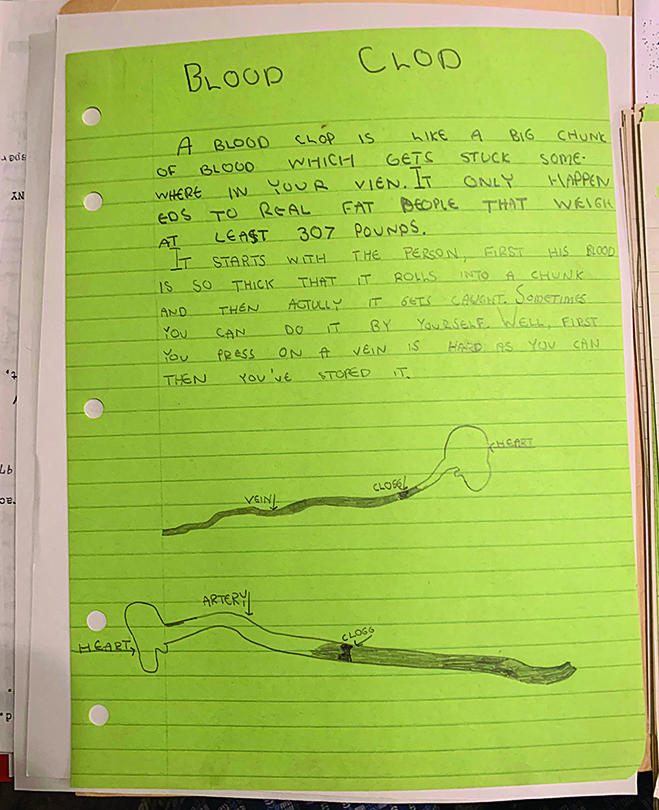 BLOOD CLOD
A BLOOD CLOP IS LIKE A BIG CHUNK
OF BLOOD WHICH GETS STUCK SOME-
WHERE IN YOUR VIEN. IT ONLY HAPPEN
EDS TO REAL FAT PEOPLE THAT WEIGH
AT LEAST 307 POUNDS.
IT STARTS WITH THE PERSON, FIRST HIS BLOOD
IS SO THICK THAT IT ROLLS INTO A CHUNK
AND THEN ACTULLY IT GETS CAUGHT. SOMETIMES
YOU CAN DO IT BY YOURSELF. WELL, FIRST
YOU PRESS ON A VEIN IS HARD AS YOU CAN
THEN YOU'VE STOPED IT.
HEART
CLOGG
VEIN
ARTERY
CLOGG
HEART